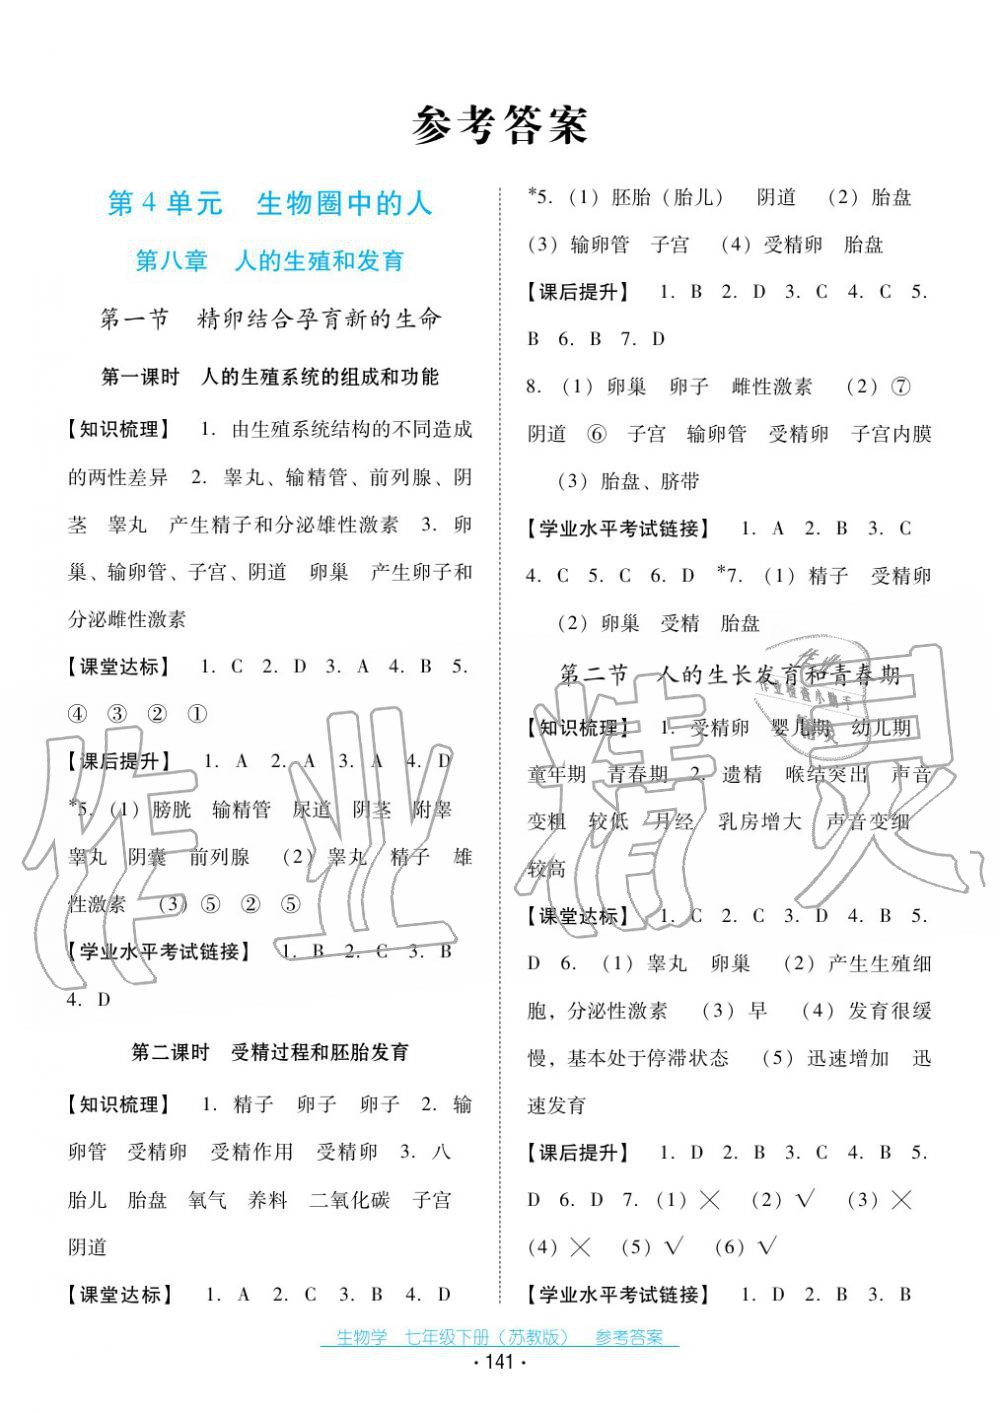 参考答案
第4单元　生物圈中的人
第八章　人的生殖和发育
第一节　精卵结合孕育新的生命
第一课时　人的生殖系统的组成和功能
【知识梳理】　1. 由生殖系统结构的不同造成
的两性差异　2. 睾丸、输精管、前列腺、阴
茎　睾丸　产生精子和分泌雄性激素　3. 卵
巢、输卵管、子宫、阴道　卵巢　产生卵子和
分泌雌性激素
【课堂达标】　1. C　2. D　3. A　4. B　5.
④　③　②　①
【课后提升】　1. A　2. A　3. A　4. D
*5. （1）膀胱　输精管　尿道　阴茎　附睾
睾丸　阴囊　前列腺　（2）睾丸　精子　雄
性激素　（3）⑤　②　⑤
【学业水平考试链接】　1. B　2. C　3. B
4. D
第二课时　受精过程和胚胎发育
【知识梳理】　1. 精子　卵子　卵子　2. 输
卵管　受精卵　受精作用　受精卵　3. 八
胎儿　胎盘　氧气　养料　二氧化碳　子宫
阴道
【课堂达标】　1. A　2. C　3. B　4. D
*5. （1）胚胎（胎儿）　阴道　（2）胎盘
（3）输卵管　子宫　（4）受精卵　胎盘
【课后提升】　1. B　2. D　3. C　4. C　5.
B　6. B　7. D
8. （1）卵巢　卵子　雌性激素　（2）⑦
阴道　⑥　子宫　输卵管　受精卵　子宫内膜
（3）胎盘、脐带
【学业水平考试链接】　1. A　2. B　3. C
4. C　5. C　6. D　*7. （1）精子　受精卵
（2）卵巢　受精　胎盘
第二节　人的生长发育和青春期
【知识梳理】　1. 受精卵　婴儿期　幼儿期
童年期　青春期　2. 遗精　喉结突出　声音
变粗　较低　月经　乳房增大　声音变细
较高
【课堂达标】　1. C　2. C　3. D　4. B　5.
D　6. （1）睾丸　卵巢　（2）产生生殖细
胞，分泌性激素　（3）早　（4）发育很缓
慢，基本处于停滞状态　（5）迅速增加　迅
速发育
【课后提升】　1. D　2. B　3. C　4. B　5.
D　6. D　7. （1）╳　（2）√　（3）╳
（4）╳　（5）√　（6）√
【学业水平考试链接】　1. D　2. B　3. B
生物学　七年级下册（苏教版）　参考答案
· 141 ·
作业精灵